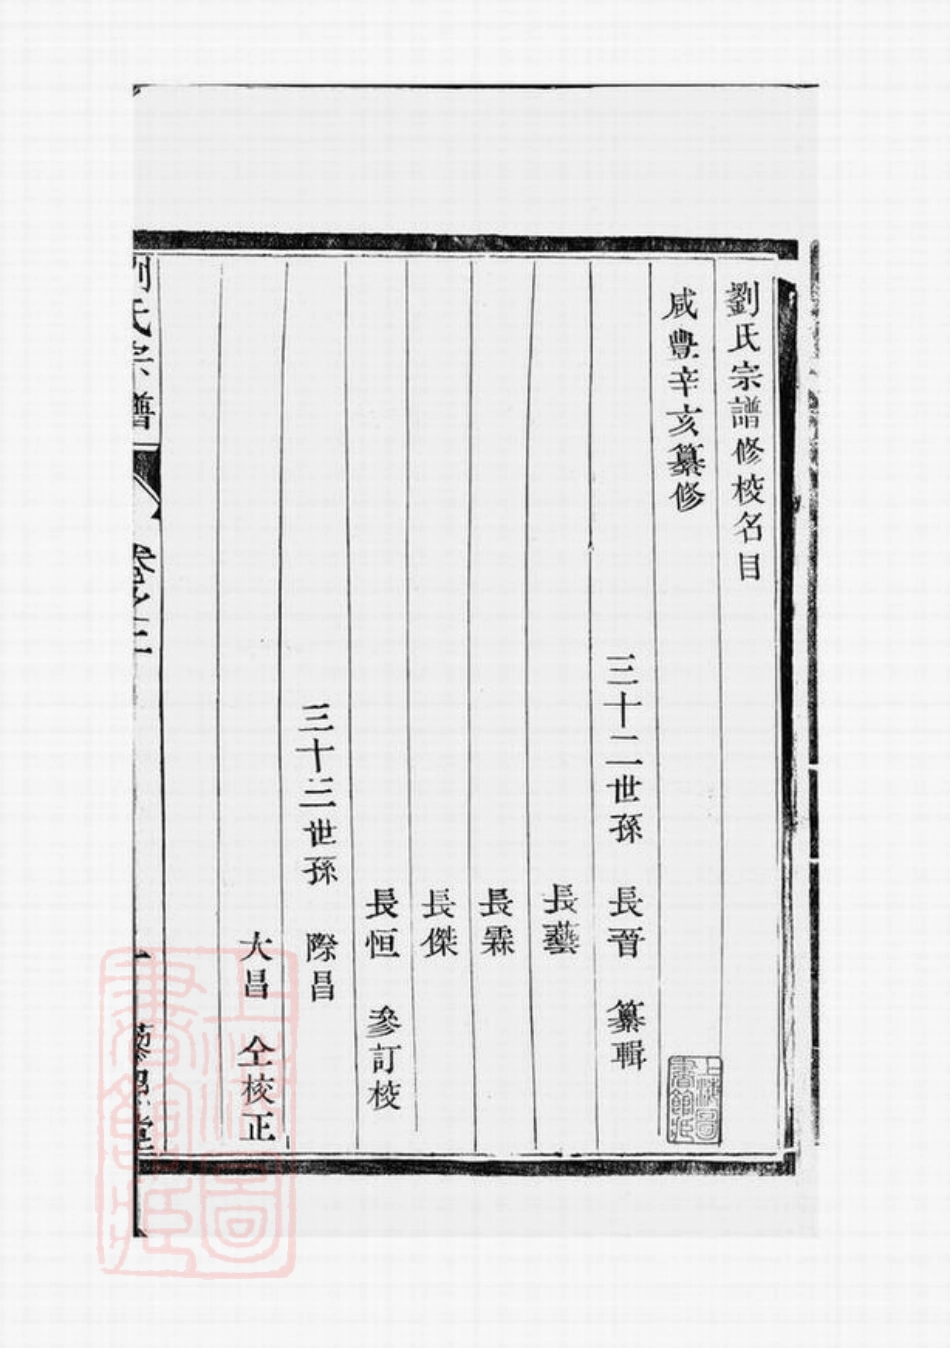 劉氏宗譜修校名目
咸豐辛亥纂修
三十二世孫 長晉 纂輯
長藝
長霖
長傑
長恒 參訂校
三十三世孫 際昌
大昌 仝校正
劉氏宗譜 卷之 藜照堂
上海圖書館藏
上海圖書館藏